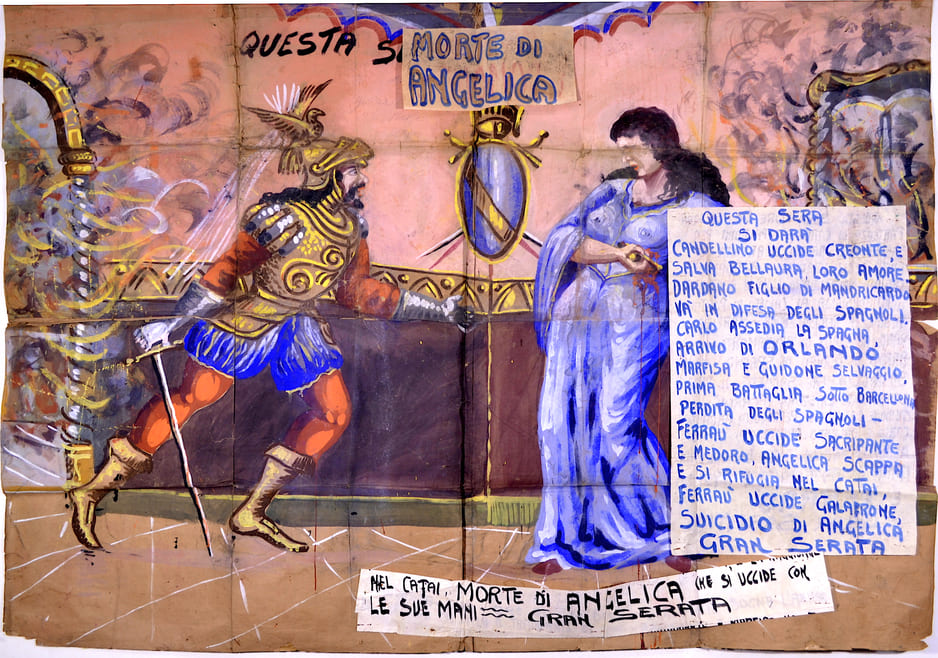 QUESTA S
MORTE DI
ANGELICA
QUESTA SERA
SI DARÀ
CANDELLINO UCCIDE CREONTE, E
SALVA BELLAURA, LORO AMORE,
DARDANO FIGLIO DI MANDRICARDO
VA' IN DIFESA DEGLI SPAGNOLI.
CARLO ASSEDIA LA SPAGNA,
ARRIVO DI ORLANDO
MARFISA E GUIDONE SELVAGGIO,
PRIMA BATTAGLIA SOTTO BARCELLONA
PERDITA DEGLI SPAGNOLI –
FERRAÙ UCCIDE SACRIPANTE
E MEDORO, ANGELICA SCAPPA
E SI RIFUGIA NEL CATAI,
FERRAÙ UCCIDE GALAFRONE,
SUICIDIO DI ANGELICA
GRAN SERATA
NEL CATAI, MORTE DI ANGELICA CHE SI UCCIDE CON
LE SUE MANI ≈≈ GRAN SERATA